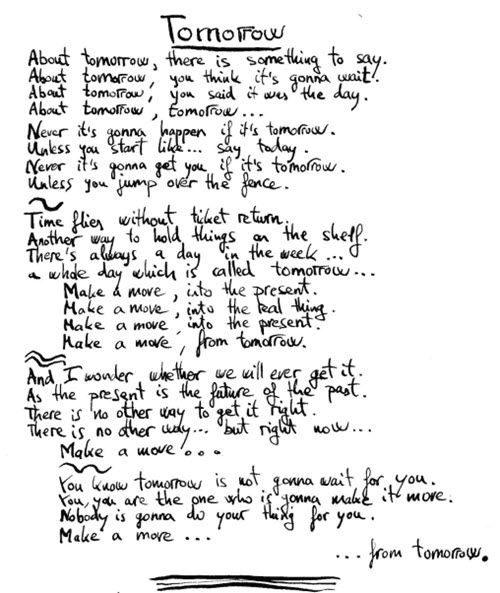 Tomorrow
About tomorrow, there is something to say.
About tomorrow, you think it's gonna wait.
About tomorrow, you said it was the day.
About tomorrow, tomorrow...
Never it's gonna happen if it's tomorrow.
Unless you start like... say today.
Never it's gonna get you if it's tomorrow.
Unless you jump over the fence.
Time flies without ticket return.
Another way to hold things on the shelf.
There's always a day in the week...
a whole day which is called tomorrow...
Make a move, into the present.
Make a move, into the real thing.
Make a move, into the present.
Make a move, from tomorrow.
And I wonder whether we will ever get it.
As the present is the future of the past.
There is no other way to get it right.
There is no other way... but right now...
Make a move...
You know tomorrow is not gonna wait for you.
You, you are the one who is gonna make it move.
Nobody is gonna do your thing for you.
Make a move...
... from tomorrow.